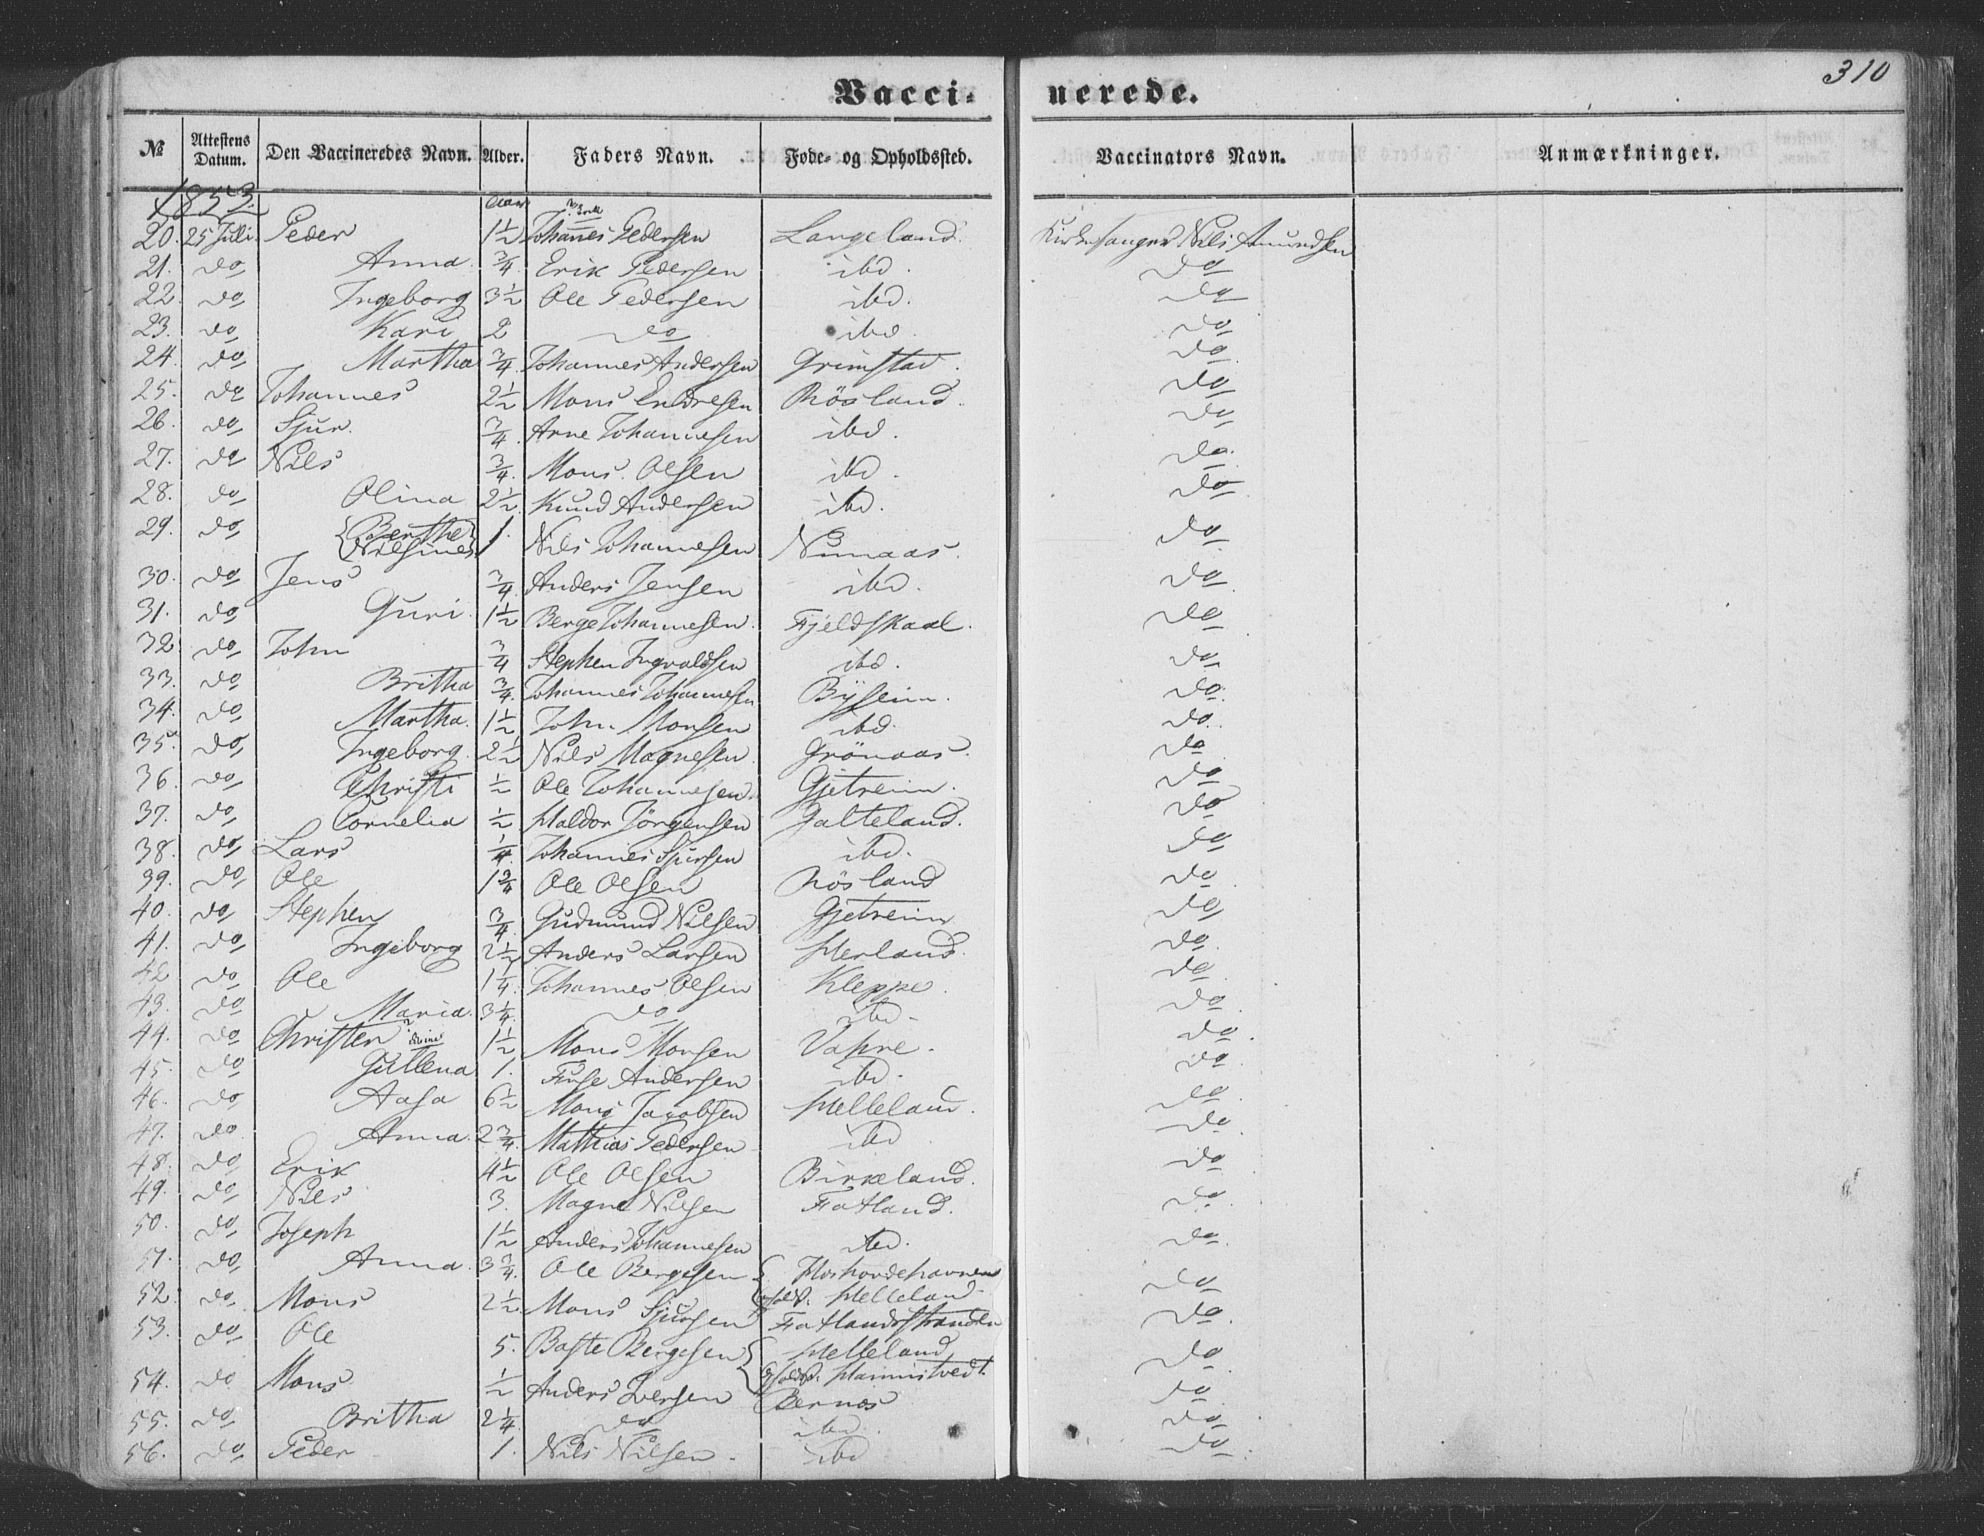 310
Vacci- nerede.
№ Attestens Datum. Den Vaccineredes Navn. Alder. Faders Navn. Føde- og Opholdssted. Vaccinators Navn. Anmærkninger.
1853. Aar
20. 25 Juli. Peder 1½ Johannes Pedersen Langeland. Kirkesanger Nils Amundsen
21. do Anna ¾ Erik Pedersen ibd. do
22. do Ingeborg 3½ Ole Pedersen ibd. do
23. do Kari 2 do ibd. do
24. do Martha ¾ Johannes Andersen Grimstad. do
25. do Johannes 2½ Mons Endresen Rösland. do
26. do Sjur ¾ Arne Johannesen ibd. do
27. do Nils ¾ Mons Olsen ibd. do
28. do Olina 2½ Knud Andersen ibd. do
29. do {Berthe Nilsine} 1. Nils Johannesen Nunaas. do
30. do Jens ¾ Anders Jensen ibd. do
31. do Guri 1½ Berge Johannesen Fjeldskaal. do
32. do John ¾ Stephen Ingvaldsen ibd. do
33. do Britha ¾ Johannes Johannesen Byseim. do
34. do Martha. 1½ John Monsen ibd. do
35. do Ingeborg 2½ Nils Magnesen Grönaas. do
36. do Christi ½ Ole Johannesen Gjetreim. do
37. do Cornelia ½ Haldor Jörgensen Galteland. do
38. do Lars ¼ Johannes Sjursen ibd. do
39. do Ole 1¾ Ole Olsen Rösland do
40. do Stephen ¾ Gudmund Nilsen Gjetreim do
41. do Ingeborg 2½ Anders Larsen Herland. do
42 do Ole 1¼ Johannes Olsen Kleppe. do
43. do Maria. 3¼ do ibd. do
44. do Christen 1½ Mons Monsen Vahre. do
45. do Gitlena 1. Finse Andersen ibd. do
46. do Aasa 6½ Mons Jacobsen Helleland. do
47. do Anna. 2¾ Mathias Pedersen ibd do
48. do Erik 4½ Ole Olsen Birkeland. do
49. do Nils 3. Magne Nilsen Fatland. do
50. do Joseph 1½ Anders Johannesen ibd. do
51. do Anna. 3¾ Ole Bergesen { Hoshovdehavnen
opholdst. Helleland do
52. do Mons 2½ Mons Sjursen Fatlandsstranden do
53. do Ole 5. Baste Bergesen { Helleland
opholdst. Hammistvedt do
54. do Mons ½ Anders Iversen Bernes do
55. do Britha 2¼ do ibd. do
56. do Peder 1. Nils Nilsen ibd do